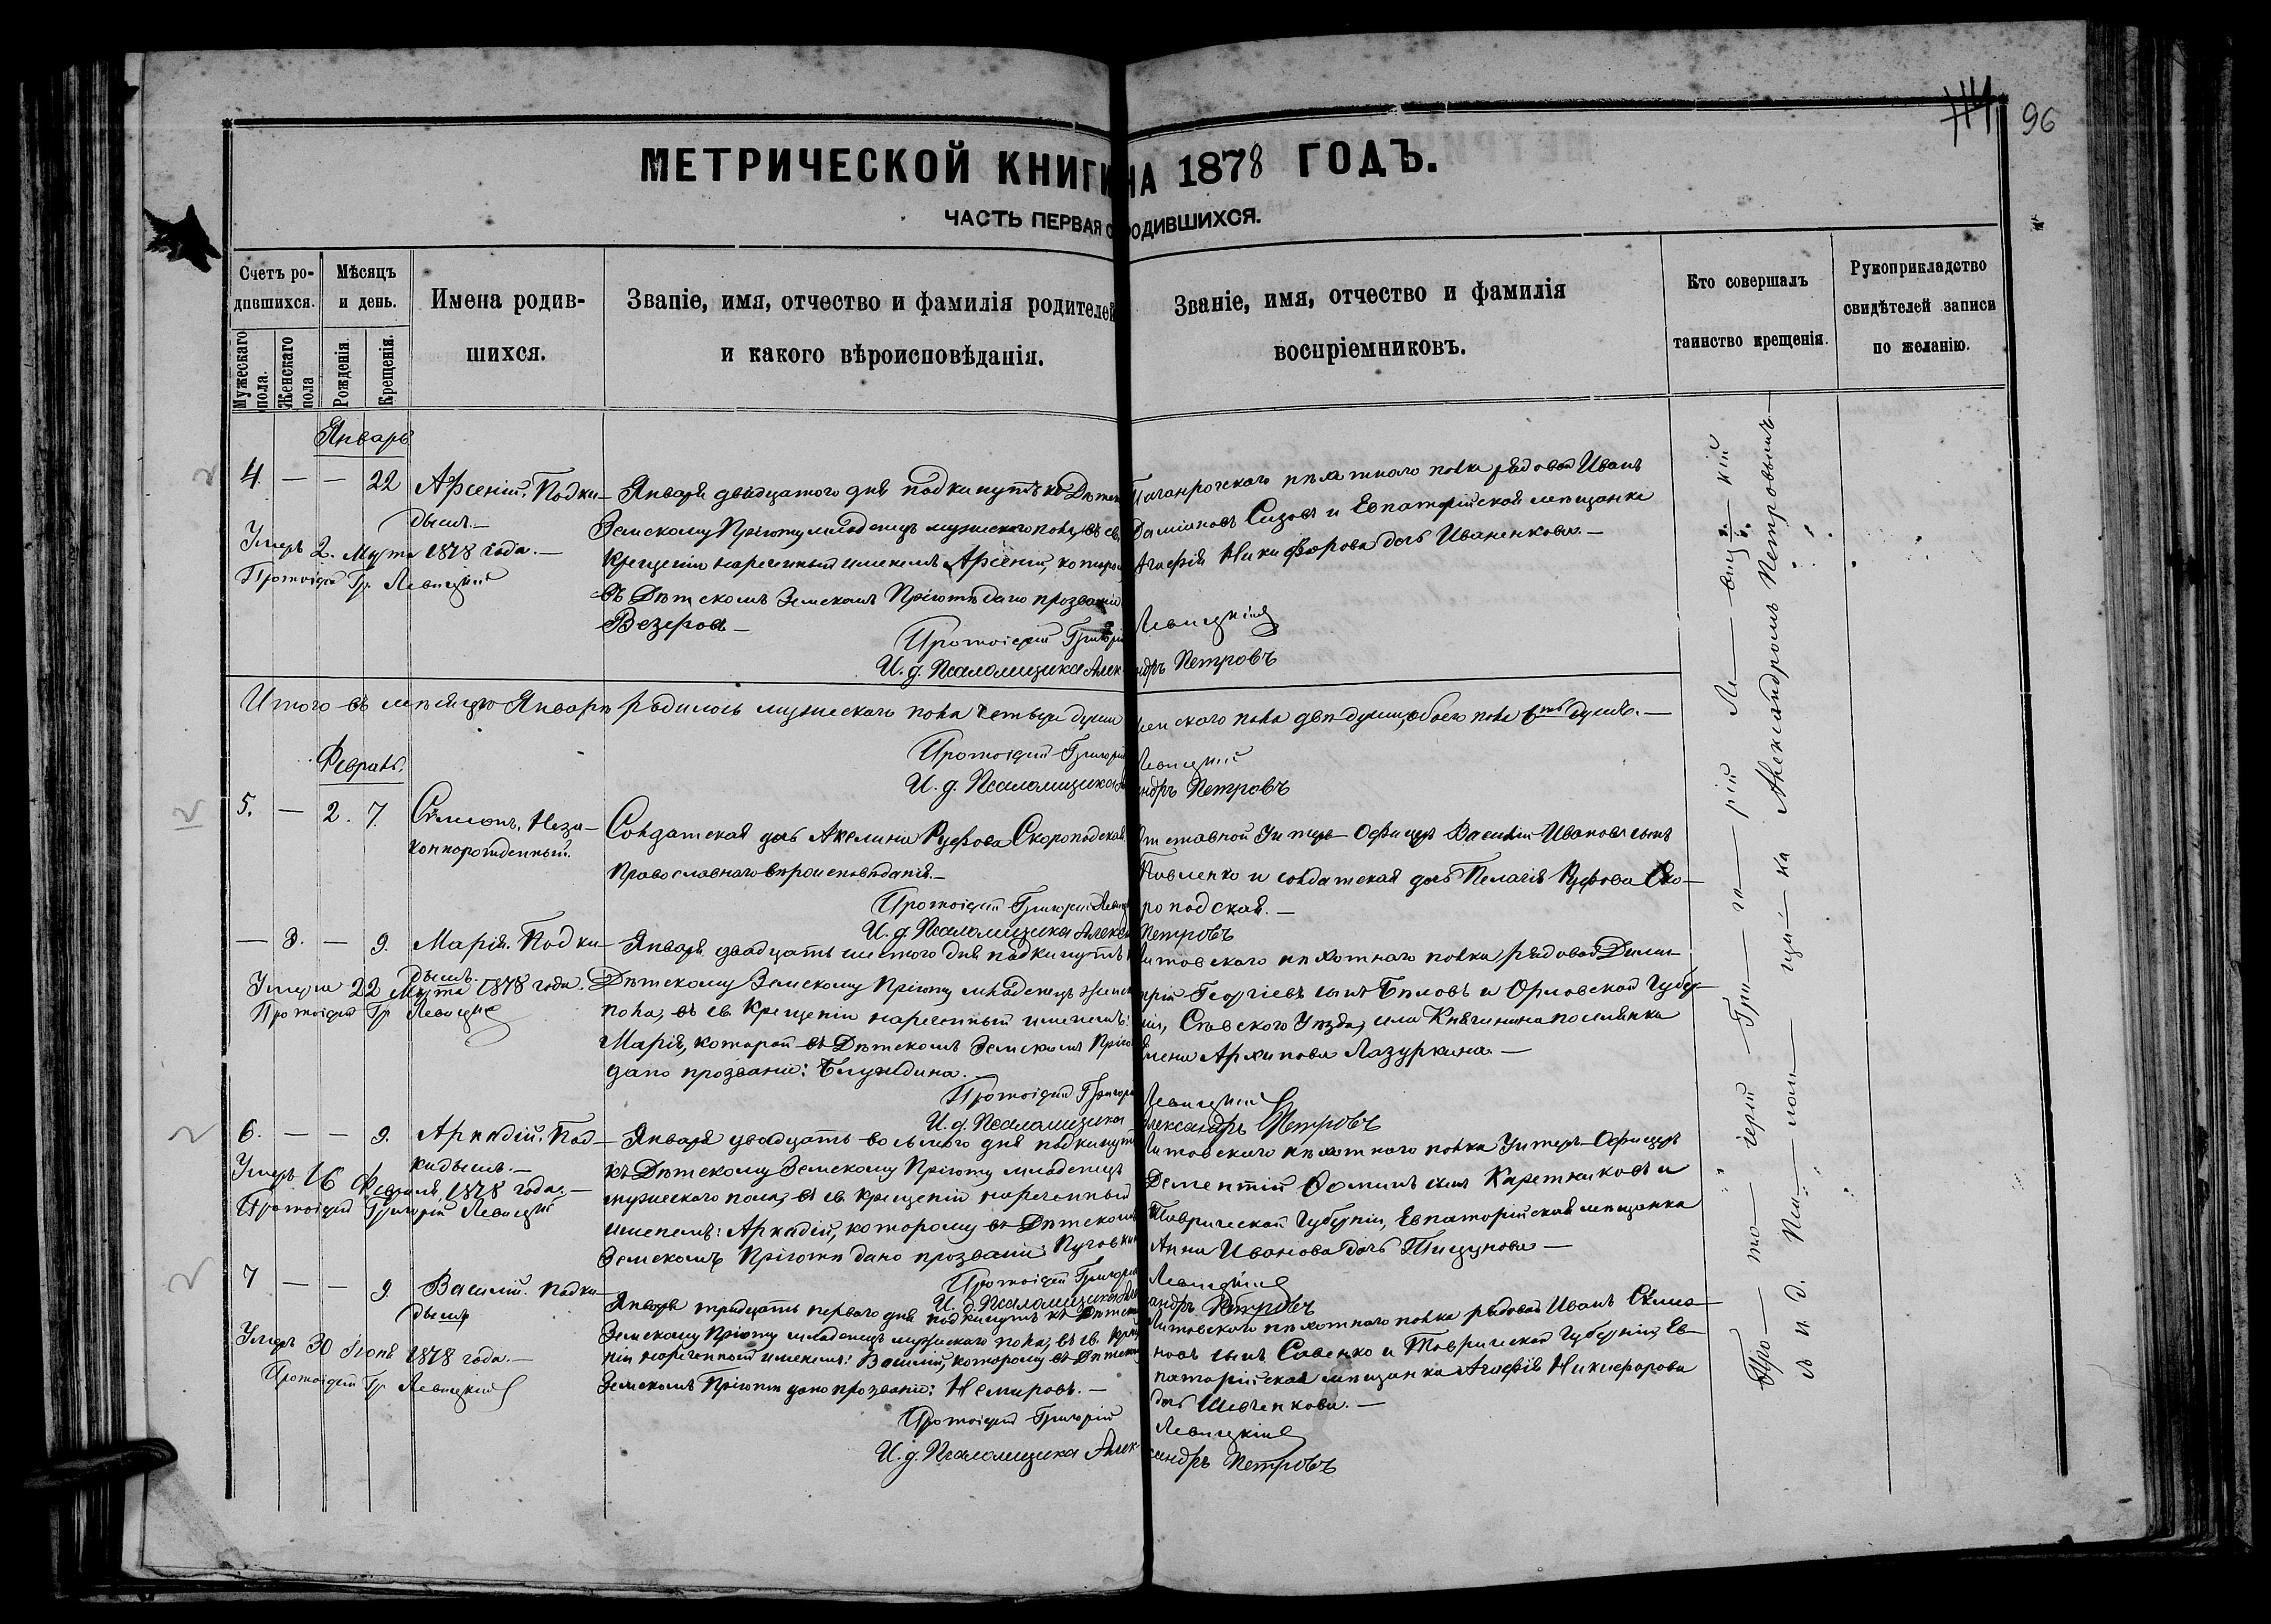 96
МЕТРИЧЕСКОЙ КНИГИ НА 1878 ГОДЪ.
ЧАСТЬ ПЕРВАЯ О РОДИВШИХСЯ.
Счетъ родившихся.
Мужескаго пола.
Женскаго пола
Мѣсяцъ и день.
Рожденія.
Крещенія.
Имена родившихся.
Званіе, имя, отчество и фамилія родителей
и какого вѣроисповѣданія.
Званіе, имя, отчество и фамилія
воспріемниковъ.
Кто совершалъ
таинство крещенія.
Рукоприкладство
свидѣтелей записи
по желанію.
Январь
4 — — 22 Арсеній. Подки-
дышъ.—
Умеръ 2. Марта 1878 года.—
Протоіерей Гр. Левицкій
Января двадцатого дня подкинутъ къ Дѣтск
Земскому Пріюту младенецъ мужескаго пола, въ св.
крещеніи нареченный именемъ Арсеній, котором
въ Дѣтскомъ Земскомъ Пріютѣ дано прозваніе
Везеровъ—
Таганрогскаго пѣхотнаго полка рядовой Иванъ
Даміановъ Сизовъ и Евпаторійская мѣщанка
Агафія Никифорова дочь Иваненкова.—
Протоіерей Григорій Левицкій
И. д. Псаломщика Александръ Петровъ
Итого въ мѣсяцѣ Январѣ родилось мужескаго пола четыре души женскаго пола двѣ души, обоего пола 6ть душъ.—
Протоіерей Григорій Левицкій
И. д. Псаломщика Александръ Петровъ
Февраль.
5. — 2. 7. Симеонъ, Неза-
коннорожденный.
Солдатская дочь Акелина Руфова Скороподская
Православнаго вѣроисповѣданія.—
Отставной Унтеръ-Офицеръ Василій Ивановъ сынъ
Павленко и солдатская дочь Пелагія Руфова Ско-
роподская.—
Протоіерей Григорій Левицкій
И. д. Псаломщика Александръ Петровъ
— 3. — 9. Марія. Подки-
дышъ.
Умерла 22 Марта 1878 года.
Протоіерей Гр. Левицкій
Января двадцать шестого дня подкинутъ къ
Дѣтскому Земскому Пріюту младенецъ женск
пола, въ св. Крещеніи нареченный именемъ:
Марія, которой въ Дѣтскомъ Земскомъ Пріютѣ
дано прозваніе: Блуждина.
Литовскаго пѣхотнаго полка рядовой Дими-
трій Георгіевъ сынъ Бѣловъ и Орловской Губер-
ніи, Сѣвскаго Уѣзда, села Княгинина поселянка
Елена Архипова Лазуркина.—
Протоіерей Григорій Левицкій
И. д. Псаломщика Александръ Петровъ
6. — — 9. Аркадій. Под-
кидышъ.—
Умеръ 16 Февраля 1878 года.—
Протоіерей Григорій Левицкій
Января двадцать восьмого дня подкинутъ
къ Дѣтскому Земскому Пріюту младенецъ
мужескаго пола, въ св. крещеніи нареченный
именемъ: Аркадій, которому въ Дѣтскомъ
Земскомъ Пріютѣ дано прозваніе: Пуговкин
Литовскаго пѣхотнаго полка Унтеръ-Офицеръ
Дементій Ѳоминъ сынъ Каретниковъ и
Таврической Губерніи, Евпаторійская мѣщанка
Анна Иванова дочь Тищунова—
Протоіерей Григорій Левицкій
И. д. Псаломщика Александръ Петровъ
7 — — 9. Василій. Подки-
дышъ
Умеръ 30 Іюня 1878 года.—
Протоіерей Гр. Левицкій
Января тридцать перваго дня подкинутъ къ Дѣтском
Земскому Пріюту младенецъ мужескаго пола, въ св. Креще
ніи нареченный именемъ: Василій, которому въ Дѣтском
Земскомъ Пріютѣ дано прозваніе: Немировъ.—
Литовскаго пѣхотнаго полка рядовой Иванъ Симео-
новъ сынъ Савенко и Таврической Губерніи, Ев-
паторійская мѣщанка Агафія Никифорова
дочь Шевченкова.—
Протоіерей Григорій Левицкій
И. д. Псаломщика Александръ Петровъ
Про—то—іерей—Гри—го—рій Ле—виц—кій
съ и. д. Пса—лом—щи—ка Александромъ Петровымъ